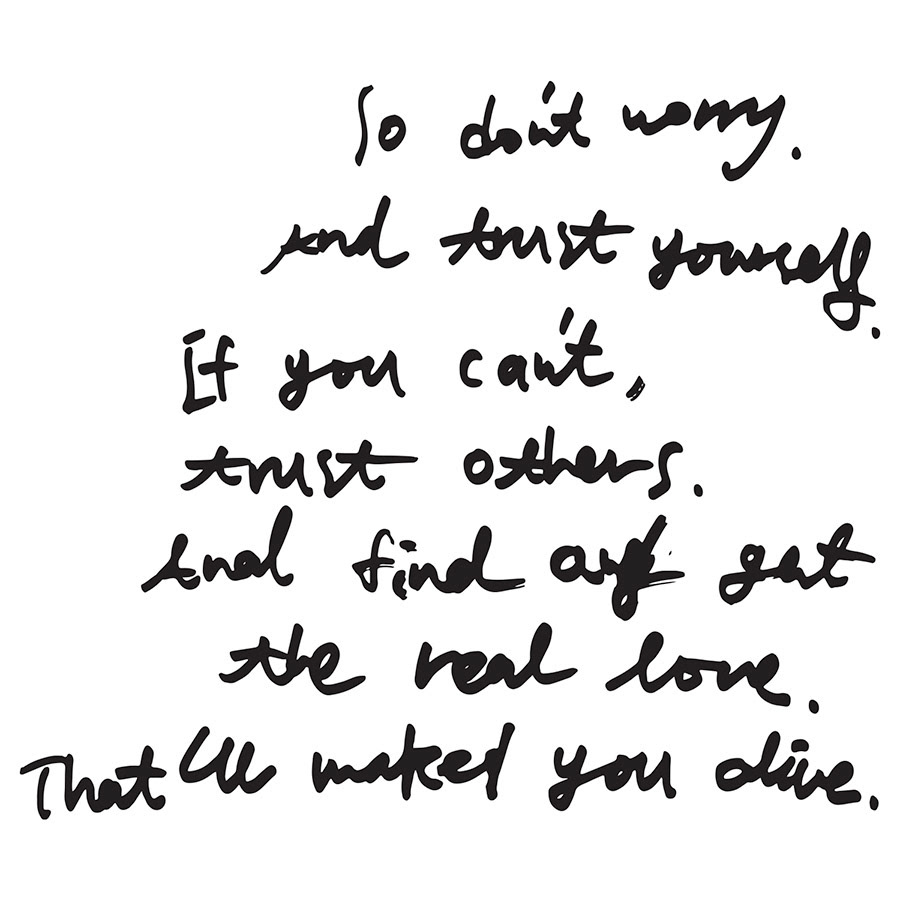 So don't worry.
And trust yourself.
If you can't,
trust others.
And find and get
the real love.
That'll maked you alive.